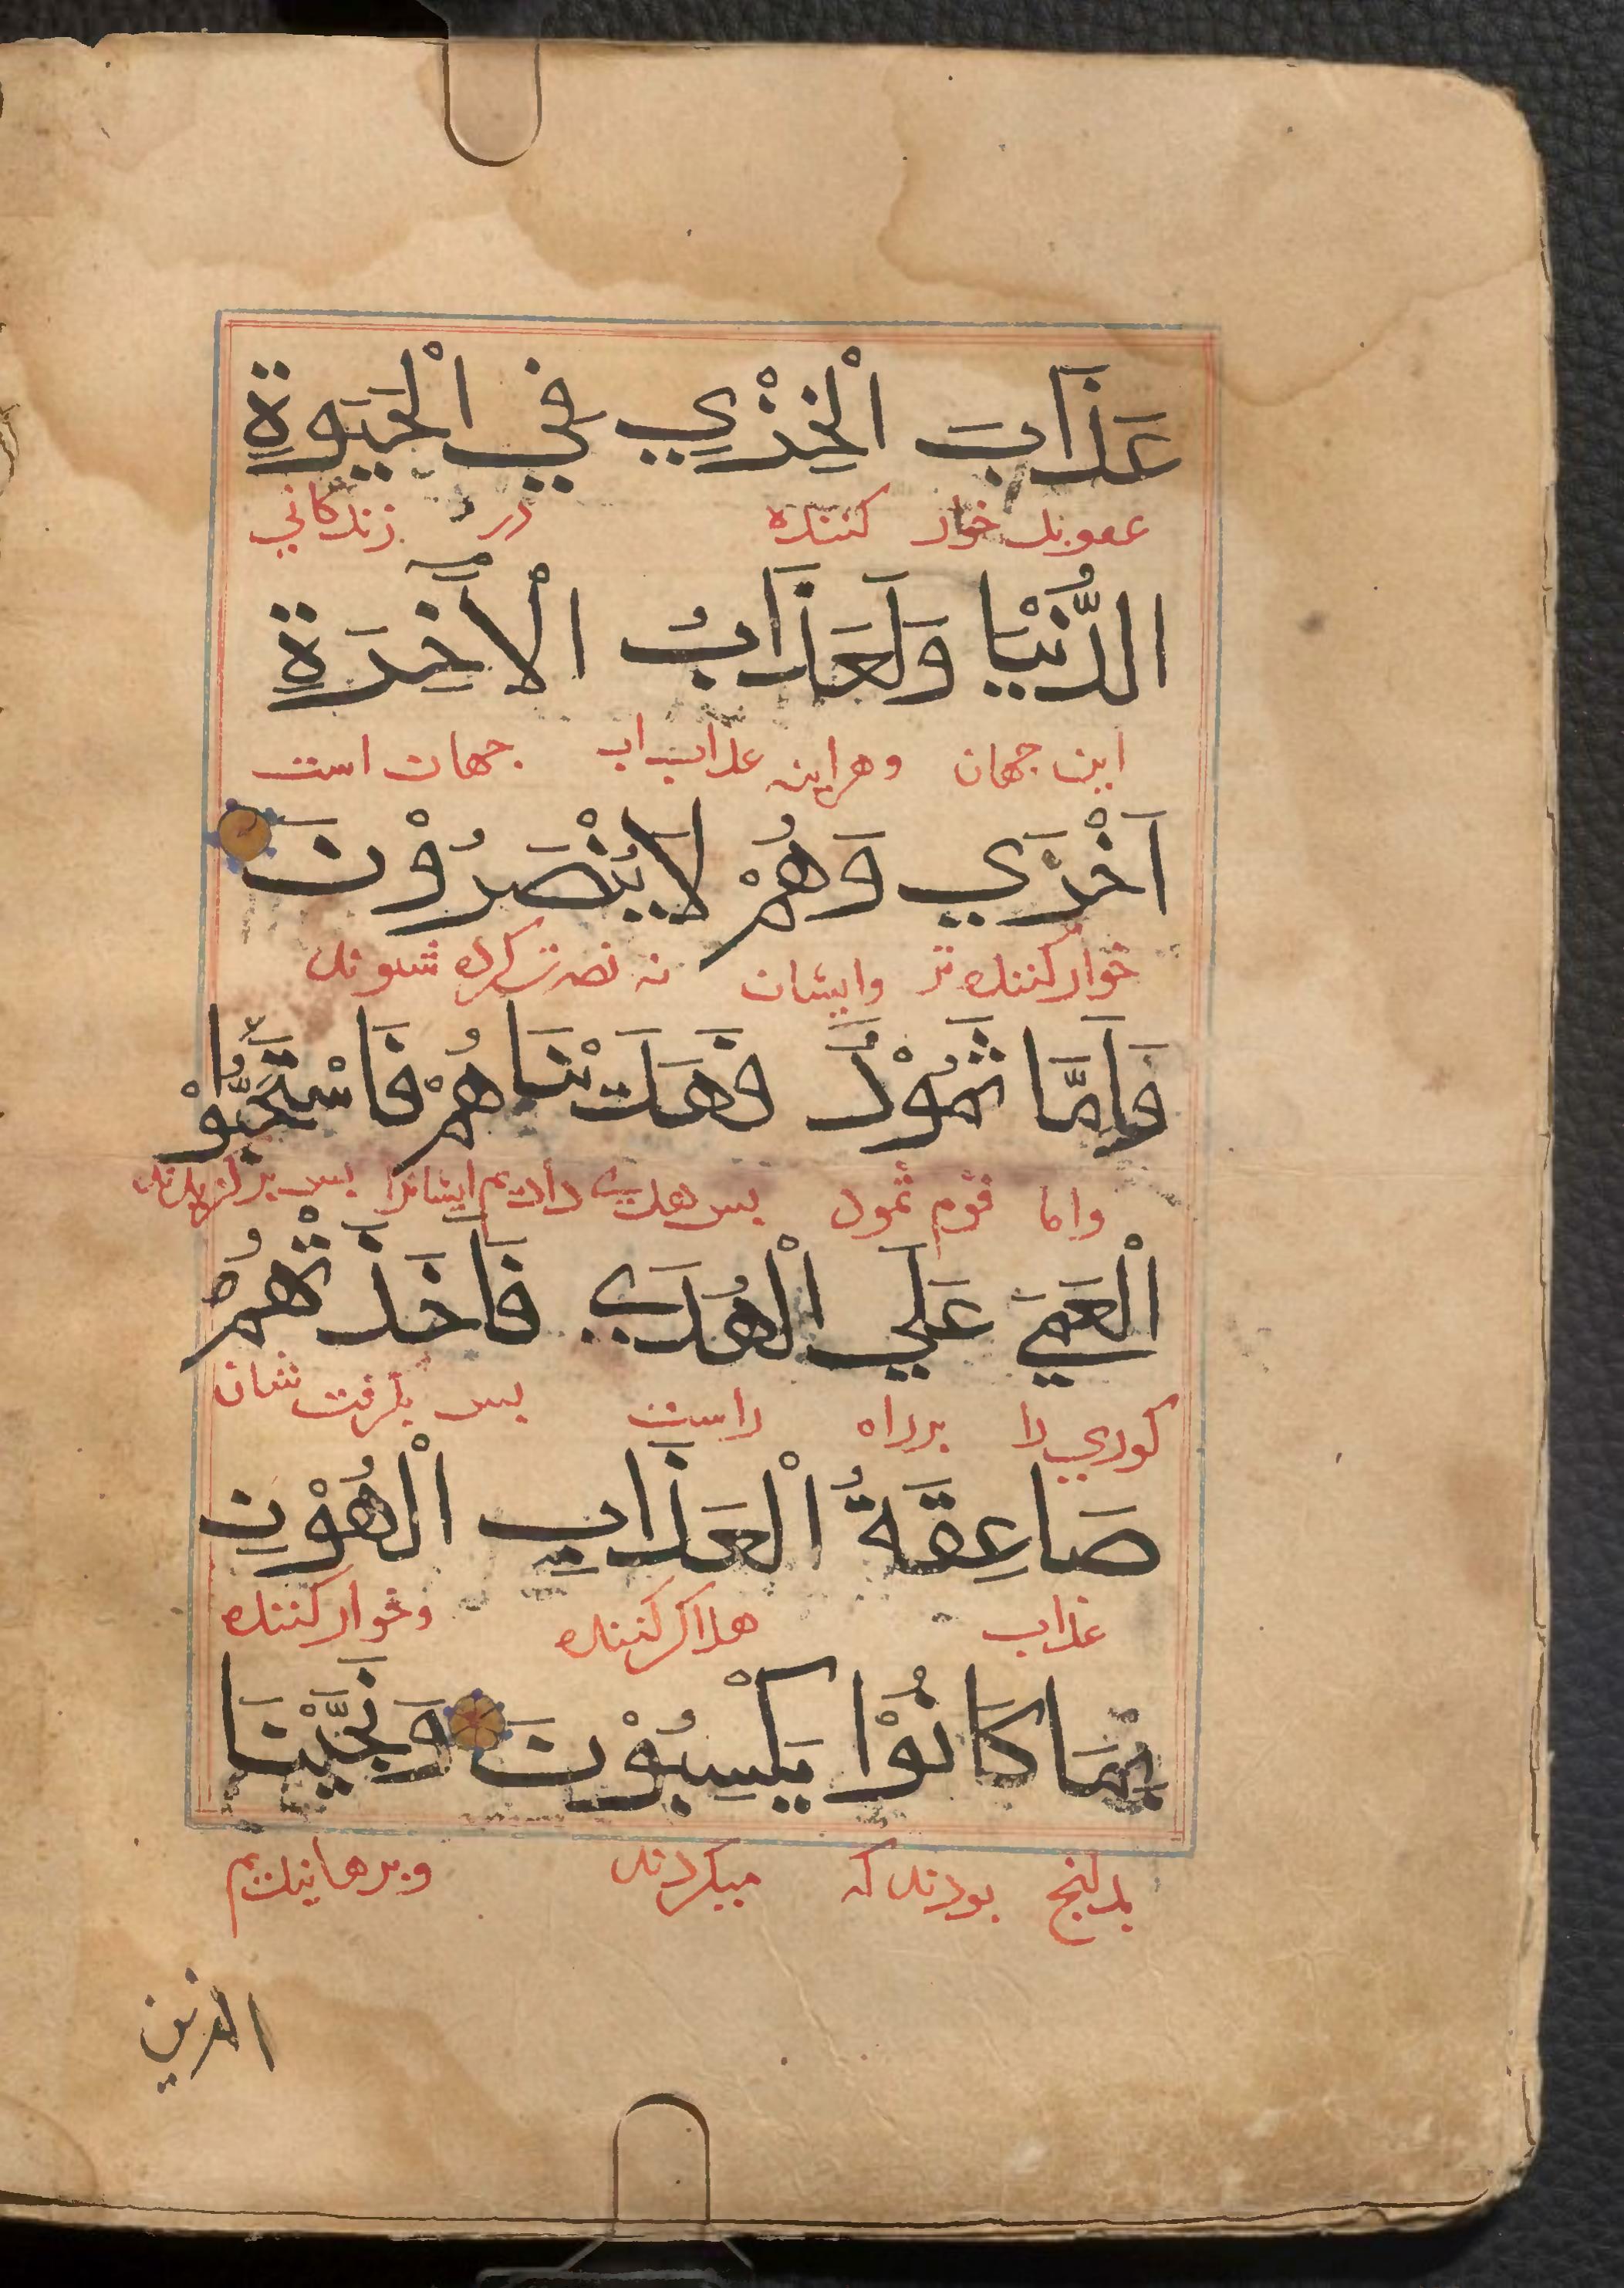 عَذَابَ الْخِزْيِ فِي الْحَيٰوةِ
عقوبت خوار کننده در زندکاني
الدُّنْيَا وَلَعَذَابُ الْاٰخِرَةِ
این جهان وهراینه عذاب اب جهان است
اَخْزَي وَهُمْ لَا يُنْصَرُوْنَ
خوار کننده تر وایشان نه نصرت کرده شوند
وَاَمَّا ثَمُوْدُ فَهَدَيْنَاهُمْ فَاسْتَحَبُّوْ
واما قوم ثمود پس هدی دادیم ایشانرا پس برکزیدند
الْعَمَي عَلَي الْهُدَي فَاَخَذَتْهُمْ
کوري را برراه راست پس بکرفت شان
صَاعِقَةُ الْعَذَابِ الْهُوْنِ
عذاب هلاک کننده وخوار کننده
بِمَا كَانُوْا يَكْسِبُوْنَ وَنَجَّيْنَا
بدانچ بودند که میکردند وبرهانیدیم
الذين